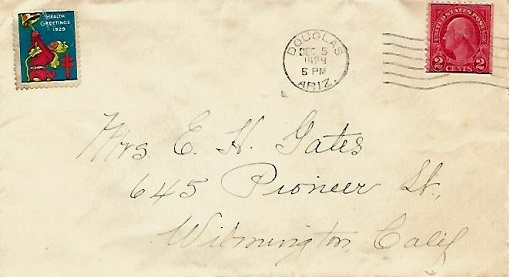 HEALTH
GREETINGS
1929
DOUGLAS
DEC 5
1929
5 PM
ARIZ.
UNITED STATES POSTAGE
2 CENTS 2
Mrs E. H. Gates
645 Pioneer St,
Wilmington Calif